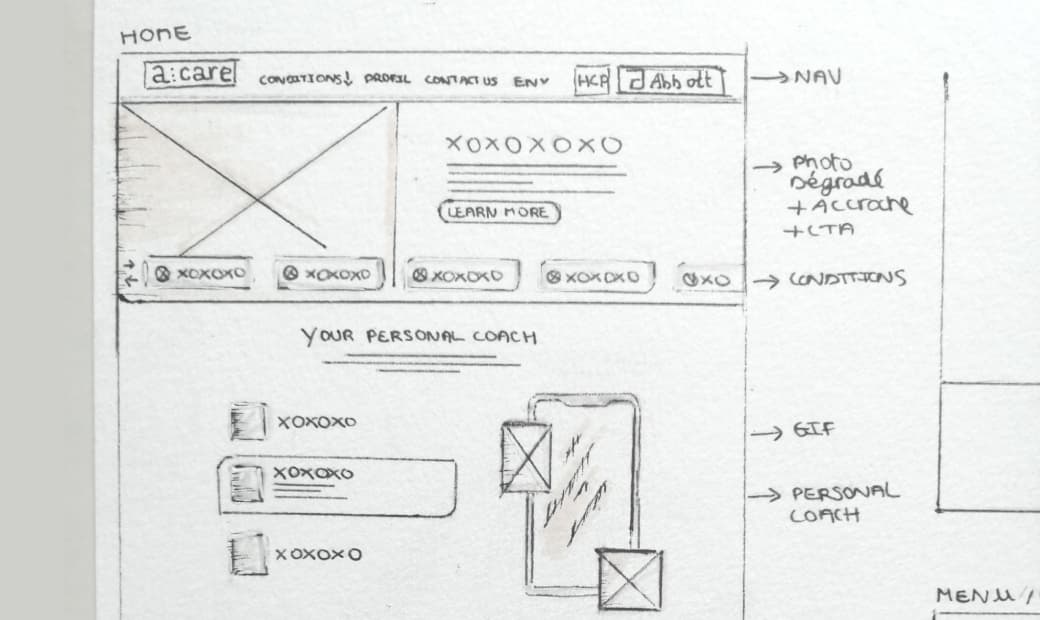 HOME
a:care CONDITIONS↓ PROFIL CONTACT US EN˅ HCP Abbott
→ NAV
XOXOXOXO
LEARN MORE
→ Photo
Dégradé
+ Accroche
+ CTA
XOXOXO XOXOXO XOXOXO XOXOXO XO
→ CONDITIONS
YOUR PERSONAL COACH
XOXOXO
→ GIF
XOXOXO
→ PERSONAL
COACH
XOXOXO
MENU /